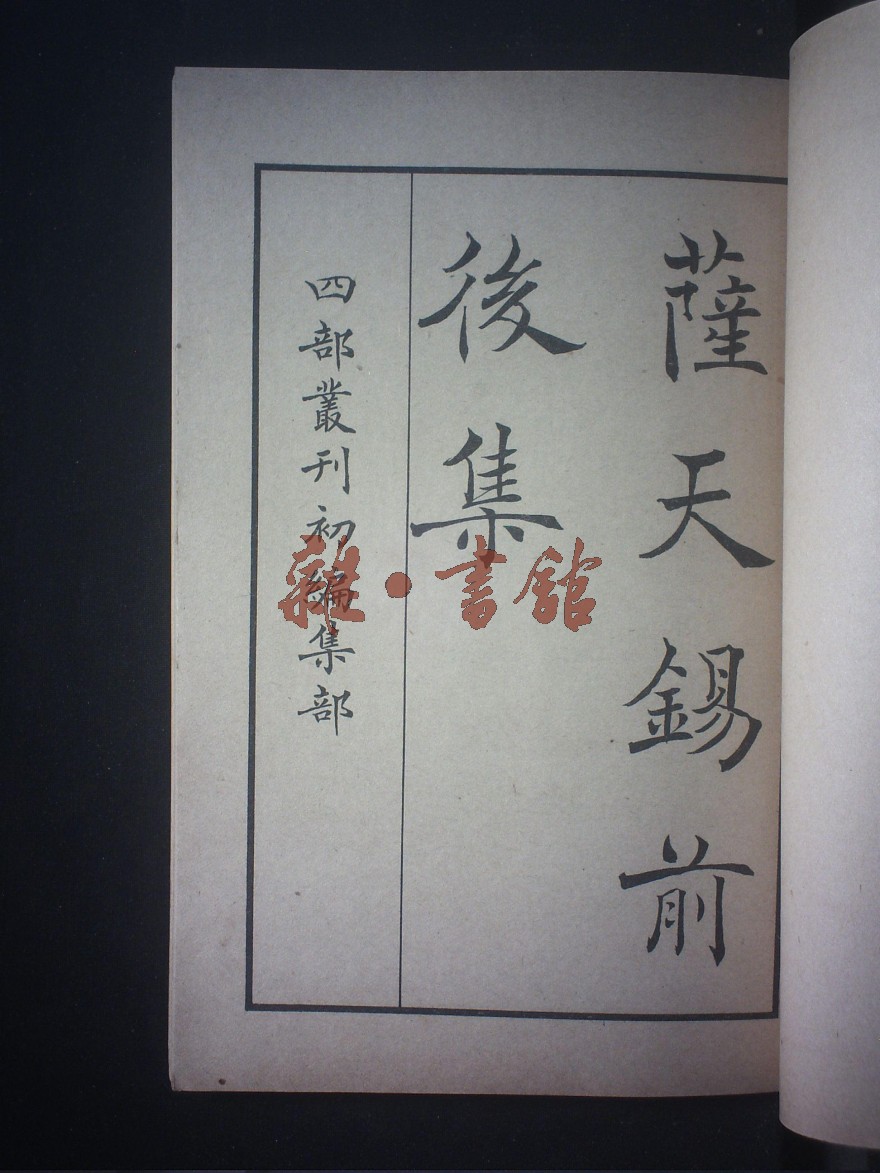 薩天錫前
後集
四部叢刊初編集部
雜·書館